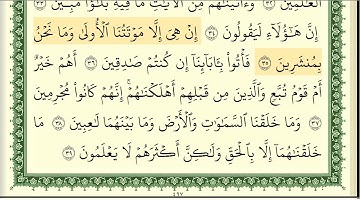 ٱلْعَٰلَمِينَ ٣٢ وَءَاتَيْنَٰهُم مِّنَ ٱلْءَايَٰتِ مَا فِيهِ بَلَٰٓؤٌا۟ مُّبِينٌ ٣٣
إِنَّ هَٰٓؤُلَآءِ لَيَقُولُونَ ٣٤ إِنْ هِىَ إِلَّا مَوْتَتُنَا ٱلْأُولَىٰ وَمَا نَحْنُ
بِمُنشَرِينَ ٣٥ فَأْتُوا۟ بِـَٔابَآئِنَآ إِن كُنتُمْ صَٰدِقِينَ ٣٦ أَهُمْ خَيْرٌ
أَمْ قَوْمُ تُبَّعٍ وَٱلَّذِينَ مِن قَبْلِهِمْ أَهْلَكْنَٰهُمْ إِنَّهُمْ كَانُوا۟ مُجْرِمِينَ
٣٧ وَمَا خَلَقْنَا ٱلسَّمَٰوَٰتِ وَٱلْأَرْضَ وَمَا بَيْنَهُمَا لَٰعِبِينَ ٣٨ مَا
خَلَقْنَٰهُمَآ إِلَّا بِٱلْحَقِّ وَلَٰكِنَّ أَكْثَرَهُمْ لَا يَعْلَمُونَ ٣٩
٤٩٧